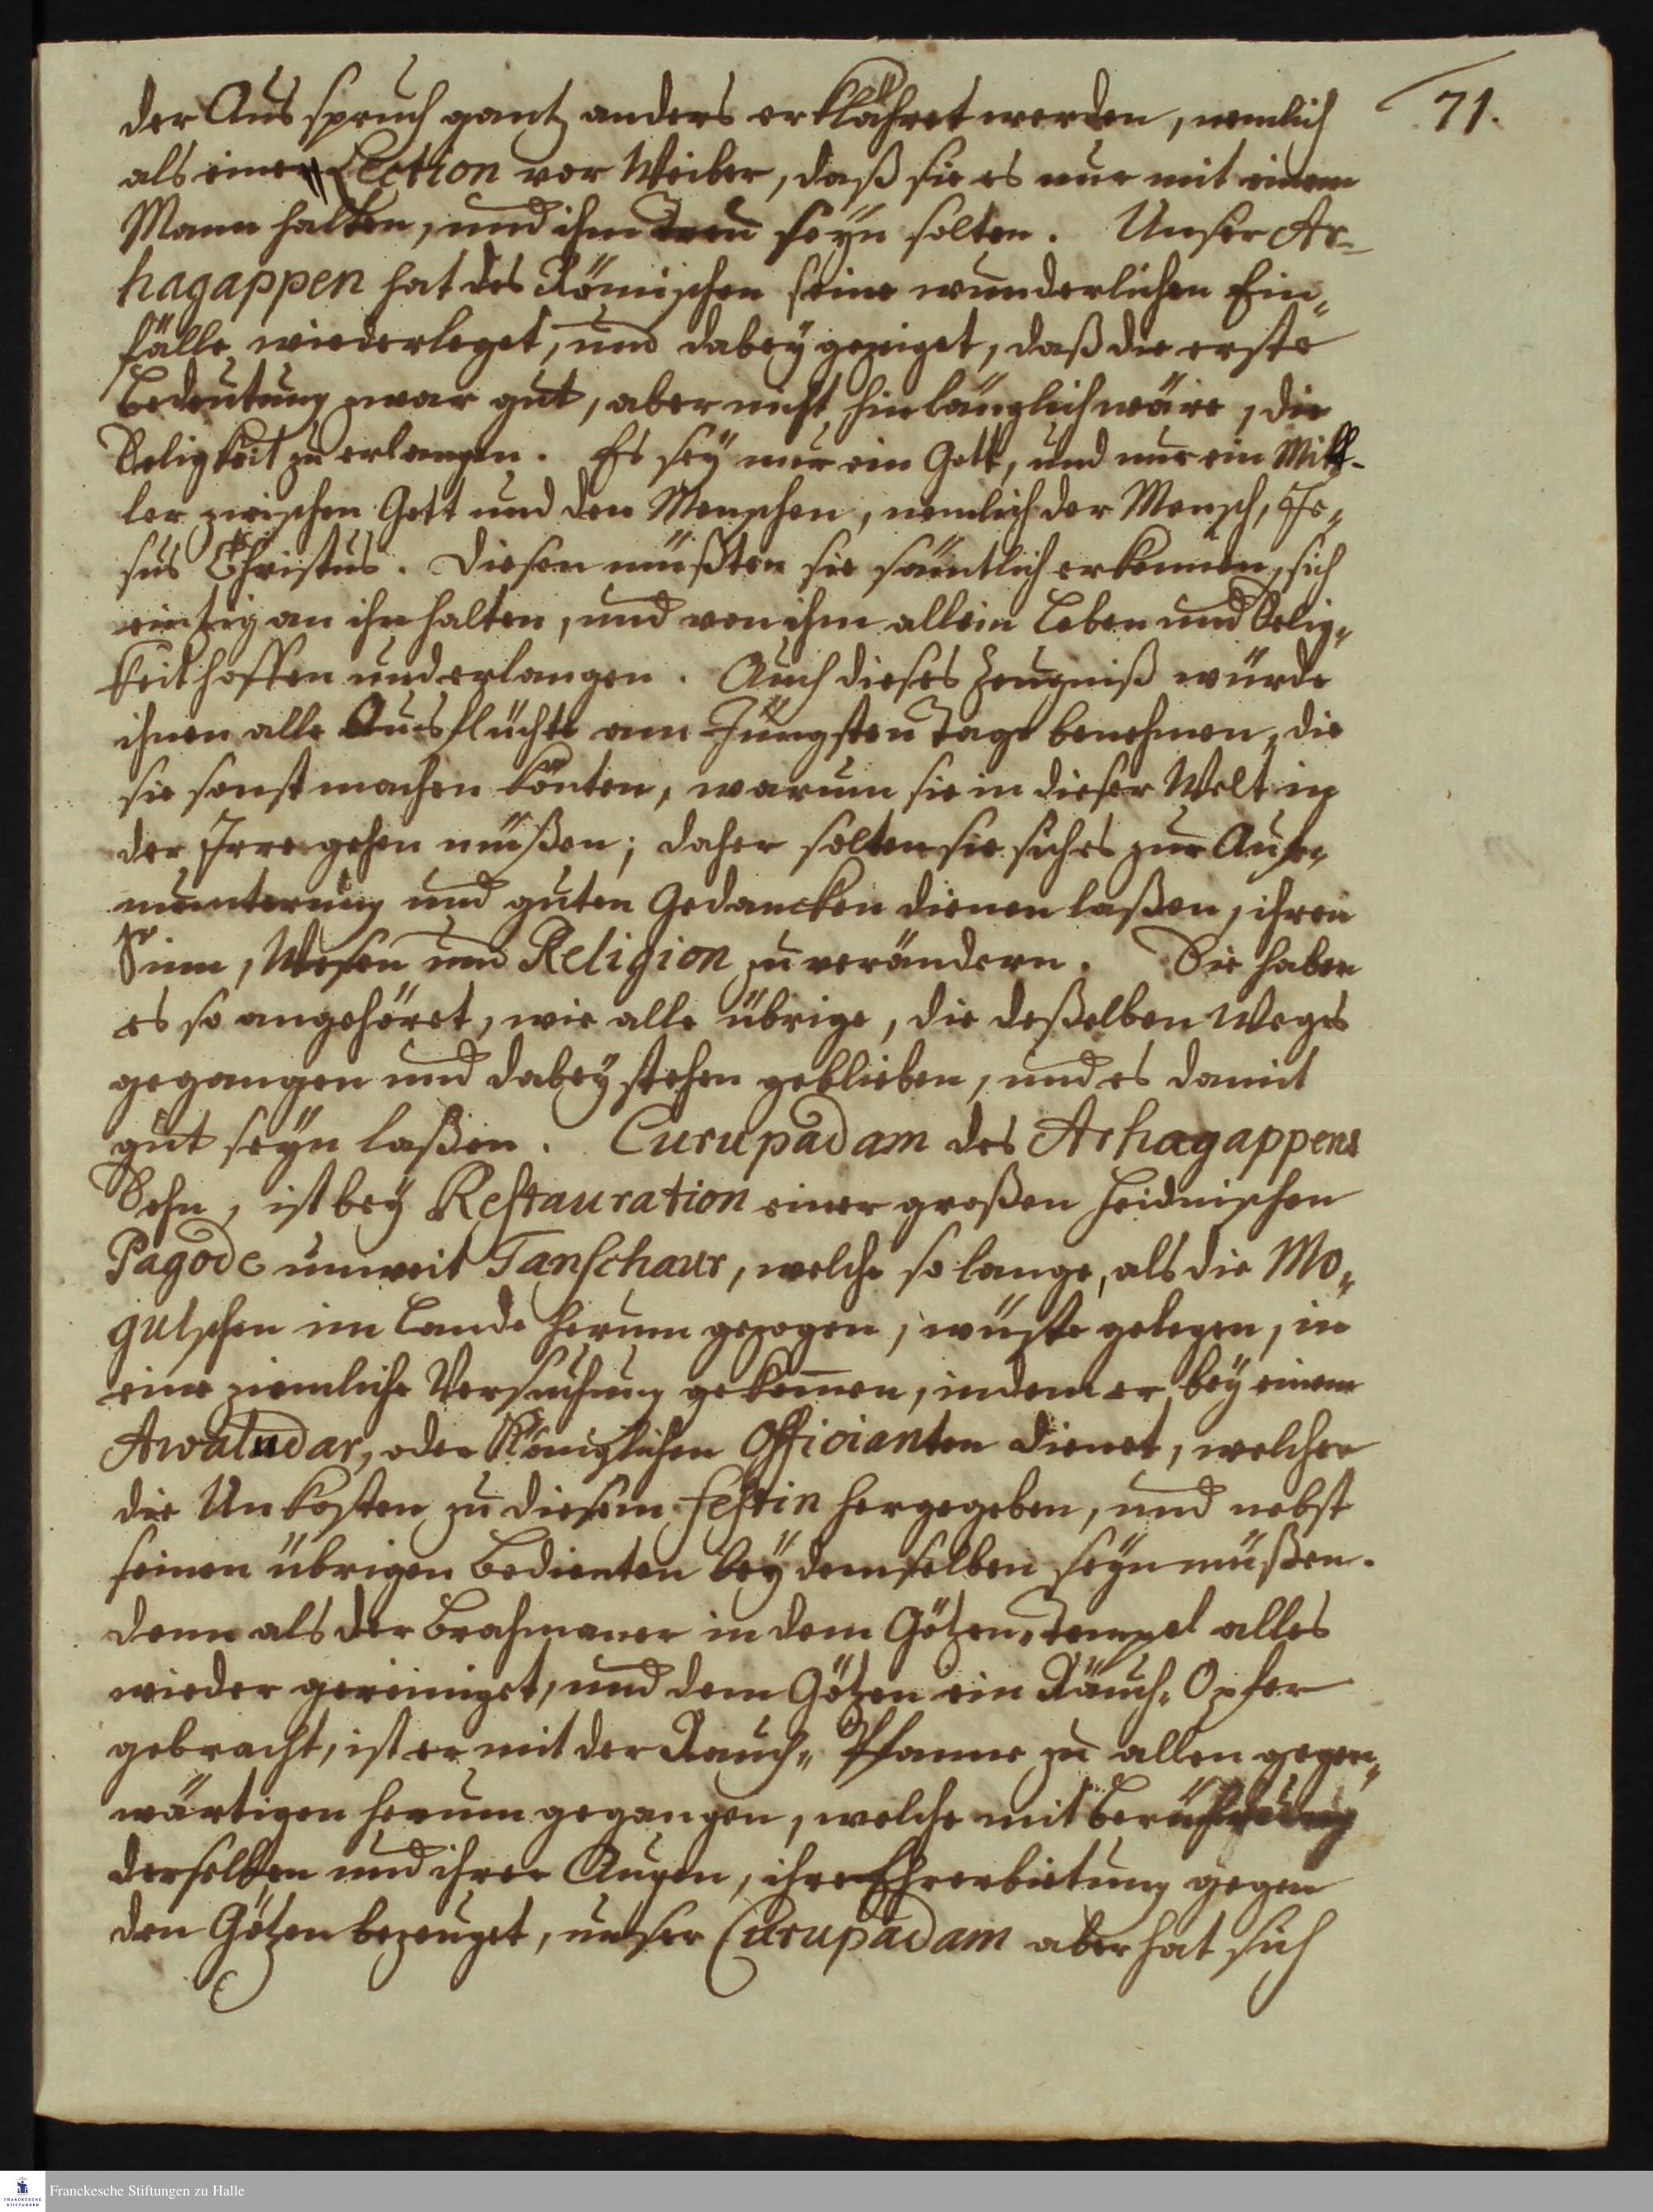 71.
der Ausspruch gantz anders erklähret werden, nemlich
als einer Lection vor Weiber, daß sie es nur mit einem
Mann halten, und ihm treu seÿn solten. Unser Ar-
hagappen hat des Römischen seine wunderlichen Ein-
fälle wiederleget, und dabeÿ gezeiget, daß die erste
Bedeutung zwar gut, aber nicht hinlänglich wäre, die
Seligkeit zu erlangen. Es seÿ nur ein Gott, und nur ein Mitt-
ler zwischen Gott und den Menschen, nemlich der Mensch, Je-
sus Christus. Diesen müßten sie sämtlich erkennen, sich
eintzig an ihn halten, und von ihm allein Leben und Selig-
keit hoffen und erlangen. Auch dieses Zeugniß würde
ihnen alle Ausflüchte am Jüngsten Tage benehmen, die
sie sonst machen könten, warum sie in dieser Welt in
der Irre gehen müßen; daher solten sie sichs zur Auf-
munterung und guten Gedancken dienen laßen, ihren
Sinn, Wesen und Religion zu verändern. Sie haben
es so angehöret, wie alle übrige, die deßelben Weges
gegangen und dabeÿ stehen geblieben, und es damit
gut seÿn laßen. Curupadam des Arhagappens
Sohn, ist beÿ Restauration einer großen Heidnischen
Pagode unweit Tanschaur, welche so lange, als die Mo-
gulschen im Lande herum gezogen, wüste gelegen, in
eine ziemliche Versuchung gekom̅en, indem er beÿ einem
Awaludar, oder Königlichen Officianten dienet, welcher
die Unkosten zu diesem Festin hergegeben, und nebst
seinen übrigen Bedienten beÿ demselben seÿn müßen.
Denn als der Brahmaner in dem Götzen-Tempel alles
wieder gereiniget, und dem Götzen ein Räuch-Opfer
gebracht, ist er mit der Rauch-Pfanne zu allen gegen-
wärtigen herum gegangen, welche mit Berührung
derselben und ihrer Augen, ihre Ehrerbietung gegen
den Götzen bezeuget, unser Curupadam aber hat sich
Franckesche Stiftungen zu Halle
FRANCKESCHE
STIFTUNGEN